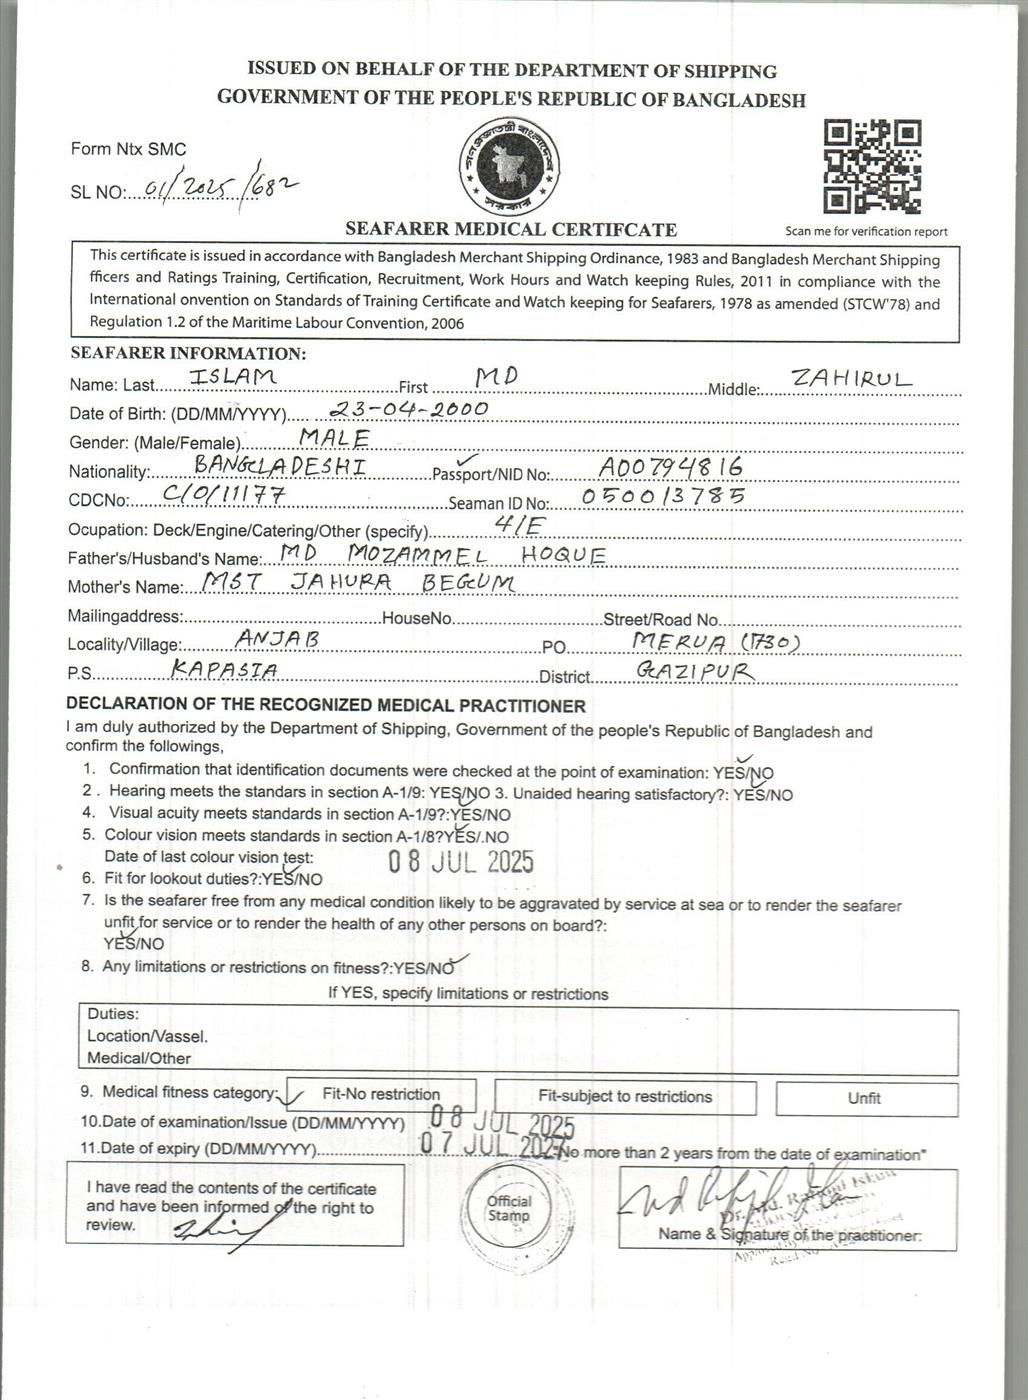 ISSUED ON BEHALF OF THE DEPARTMENT OF SHIPPING
GOVERNMENT OF THE PEOPLE'S REPUBLIC OF BANGLADESH
Form Ntx SMC
SL NO:....01/2025/682
গণপ্রজাতন্ত্রী বাংলাদেশ
সরকার
Scan me for verification report
SEAFARER MEDICAL CERTIFCATE
This certificate is issued in accordance with Bangladesh Merchant Shipping Ordinance, 1983 and Bangladesh Merchant Shipping
fficers and Ratings Training, Certification, Recruitment, Work Hours and Watch keeping Rules, 2011 in compliance with the
International onvention on Standards of Training Certificate and Watch keeping for Seafarers, 1978 as amended (STCW'78) and
Regulation 1.2 of the Maritime Labour Convention, 2006
SEAFARER INFORMATION:
Name: Last ISLAM First MD Middle: ZAHIRUL
Date of Birth: (DD/MM/YYYY) 23-04-2000
Gender: (Male/Female) MALE
Nationality: BANGLADESHI Passport/NID No: A00794816
CDCNo: C/O/11177 Seaman ID No: 050013785
Ocupation: Deck/Engine/Catering/Other (specify) 4/E
Father's/Husband's Name: MD MOZAMMEL HOQUE
Mother's Name: MST JAHURA BEGUM
Mailingaddress: HouseNo Street/Road No
Locality/Village: ANJAB PO MERUA (1730)
P.S. KAPASIA District GAZIPUR
DECLARATION OF THE RECOGNIZED MEDICAL PRACTITIONER
I am duly authorized by the Department of Shipping, Government of the people's Republic of Bangladesh and
confirm the followings,
1. Confirmation that identification documents were checked at the point of examination: YES/NO
2 . Hearing meets the standars in section A-1/9: YES/NO 3. Unaided hearing satisfactory?: YES/NO
4. Visual acuity meets standards in section A-1/9?:YES/NO
5. Colour vision meets standards in section A-1/8?YES/.NO
Date of last colour vision test: 08 JUL 2025
6. Fit for lookout duties?:YES/NO
7. Is the seafarer free from any medical condition likely to be aggravated by service at sea or to render the seafarer
unfit for service or to render the health of any other persons on board?:
YES/NO
8. Any limitations or restrictions on fitness?:YES/NO
If YES, specify limitations or restrictions
Duties:
Location/Vassel.
Medical/Other
9. Medical fitness category: Fit-No restriction Fit-subject to restrictions Unfit
10.Date of examination/Issue (DD/MM/YYYY) 08 JUL 2025
11.Date of expiry (DD/MM/YYYY) 07 JUL 2027 No more than 2 years from the date of examination"
I have read the contents of the certificate
and have been informed of the right to
review.
Official
Stamp
Name & Signature of the practitioner: